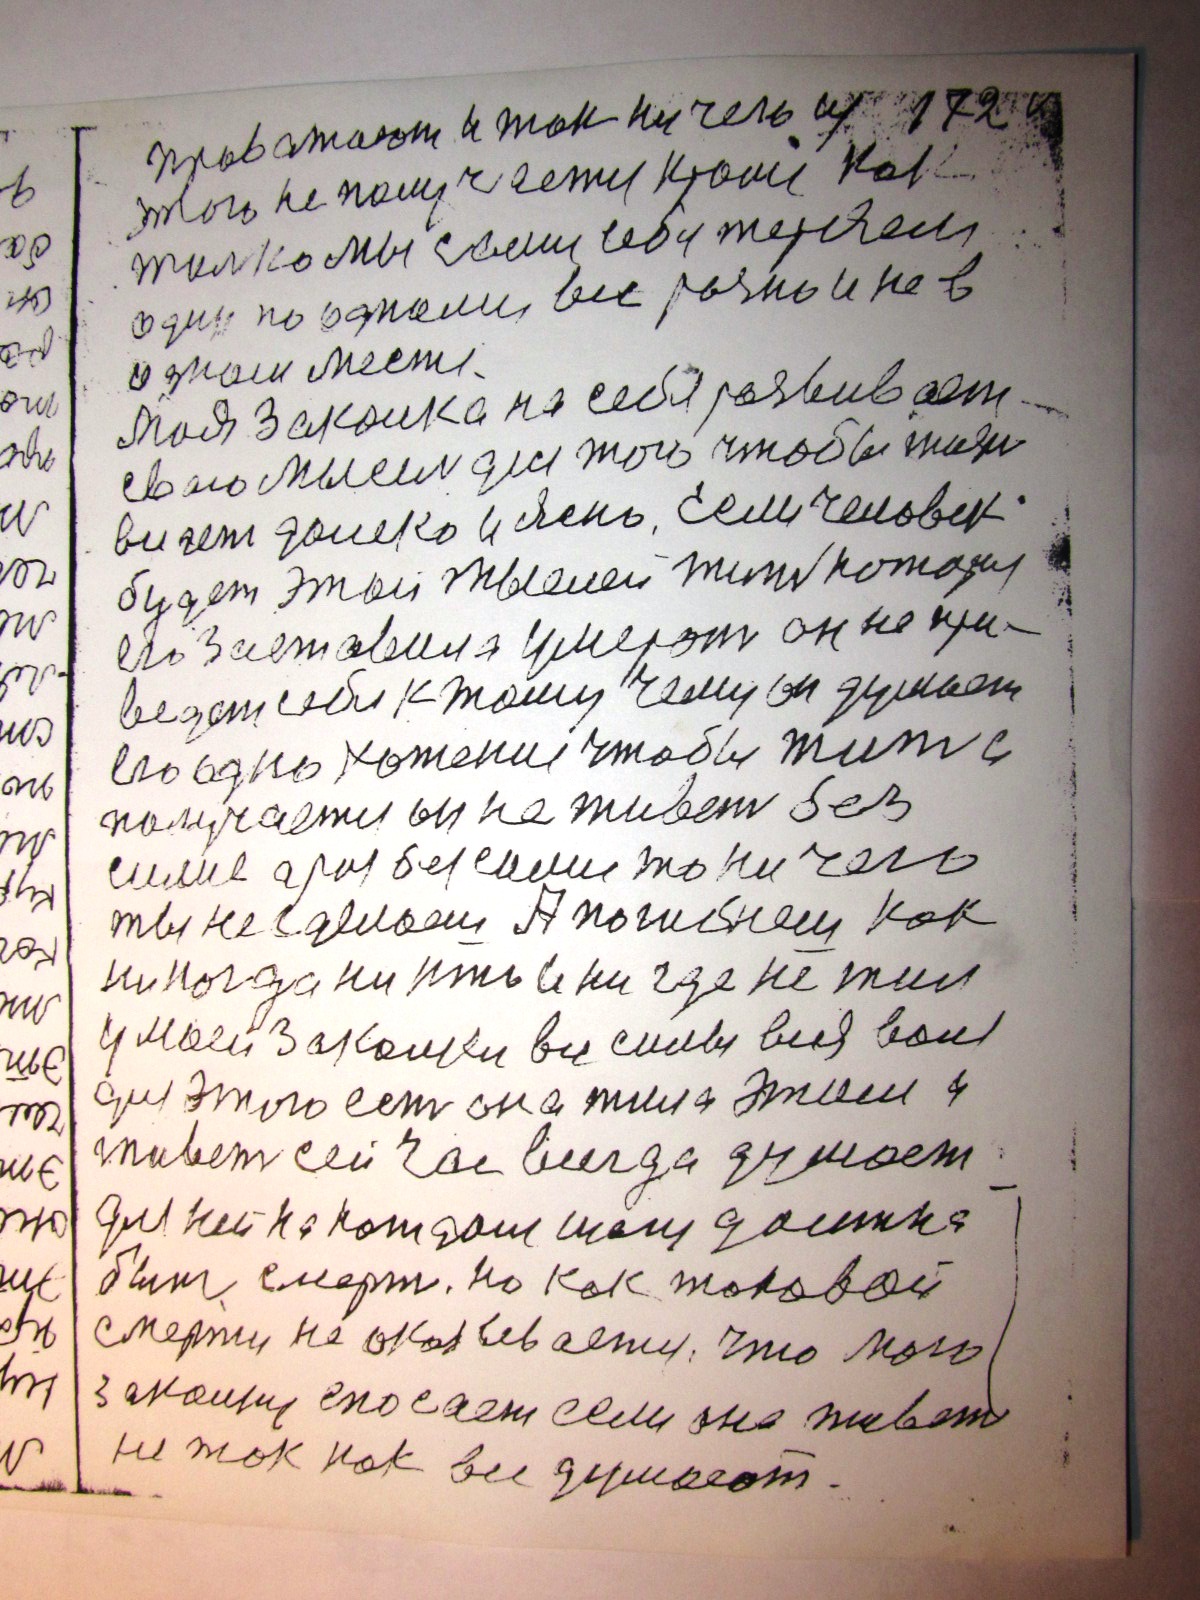 провожают и так ничего из 172
этого не получаети кроми как
толко мы сами себи теряеми
один по одному все разно и не в
одном месте.
Моя закалка на себя развивает
свою мысел для того чтобы жизн
видет далеко и ясно, если человек
будет этой мыслей жить котория
его заставила умерат он не при-
ведет себя к тому чему он думает
его одно хотение чтобы жит а
получаети он не живет без
силие а раз без силие то ничего
ты не сделаеш А погибнеш как
никогда никто и нигде не жил
у моей закалки все силы вся воля
для этого ест она жила этим и
живет сейчас всегда думает
для ней на каждом шагу должна
быт смерт. но как таковой
смерти не оказывается. что мою
закалку спосает если она живет
не так как все думают.